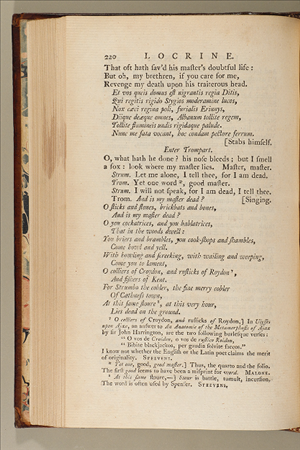 220 LOCRINE.
That oft hath sav'd his master's doubtful life:
But oh, my brethren, if you care for me,
Revenge my death upon his traiterous head.
Et vos queis domus est nigrantis regia Ditis,
Qui regitis rigido Stygios moderamine lucos,
Nox cæci regina poli, furialis Erinnys,
Diique deæque omnes, Albanum tollite regem,
Tollite flumineis undis rigidaque palude.
Nunc me fata vocant, hoc condam pectore ferrum.
[Stabs himself.
Enter Trompart.
O, what hath he done? his nose bleeds; but I smell
a fox: look where my master lies. Master, master.
Strum. Let me alone, I tell thee, for I am dead.
Trom. Yet one word*, good master.
Strum. I will not speak, for I am dead, I tell thee.
Trom. And is my master dead? [Singing.
O sticks and stones, brickbats and bones,
And is my master dead?
O you cockatrices, and you bablatrices,
That in the woods dwell:
You briers and brambles, you cook-shops and shambles,
Come howl and yell.
With howling and screeking, with wailing and weeping,
Come you to lament,
O colliers of Croydon, and rusticks of Roydon⁷,
And fishers of Kent.
For Strumbo the cobler, the fine merry cobler
Of Cathness town,
At this same stoure⁸, at this very hour,
Lies dead on the ground.
⁷ O colliers of Croydon, and rusticks of Roydon,] In Ulysses
upon Ajax, an answer to the Metamorphosis of Ajax
by sir John Harrington, are the two following burlesque verses:
" O vos de Croidon, o vos de rustice Roidon,
" Bibite blackjackos, per gaudia solvite succos."
I know not whether the English or the Latin poet claims the merit
of originality. STEEVENS.
* Yet one, good, good master.] Thus, the quarto and the folio.
The first good seems to have been a misprint for word. MALONE.
⁸ At this same stoure,—] Stour is battle, tumult, incursion.
The word is often used by Spenser. STEEVENS.